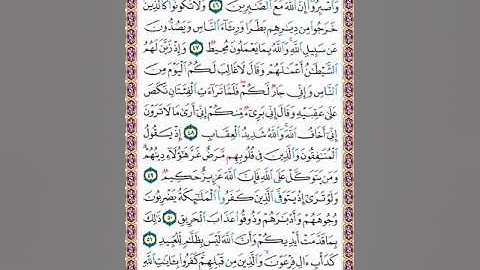 وَٱصۡبِرُوٓاْۚ إِنَّ ٱللَّهَ مَعَ ٱلصَّـٰبِرِينَ ٤٦ وَلَا تَكُونُواْ كَٱلَّذِينَ
خَرَجُواْ مِن دِيَـٰرِهِم بَطَرٗا وَرِئَآءَ ٱلنَّاسِ وَيَصُدُّونَ
عَن سَبِيلِ ٱللَّهِۚ وَٱللَّهُ بِمَا يَعۡمَلُونَ مُحِيطٞ ٤٧ وَإِذۡ زَيَّنَ لَهُمُ
ٱلشَّيۡطَـٰنُ أَعۡمَـٰلَهُمۡ وَقَالَ لَا غَالِبَ لَكُمُ ٱلۡيَوۡمَ مِنَ
ٱلنَّاسِ وَإِنِّي جَارٞ لَّكُمۡۖ فَلَمَّا تَرَآءَتِ ٱلۡفِئَتَانِ نَكَصَ
عَلَىٰ عَقِبَيۡهِ وَقَالَ إِنِّي بَرِيٓءٞ مِّنكُمۡ إِنِّيٓ أَرَىٰ مَا لَا تَرَوۡنَ
إِنِّيٓ أَخَافُ ٱللَّهَۚ وَٱللَّهُ شَدِيدُ ٱلۡعِقَابِ ٤٨ إِذۡ يَقُولُ
ٱلۡمُنَـٰفِقُونَ وَٱلَّذِينَ فِي قُلُوبِهِم مَّرَضٌ غَرَّ هَـٰٓؤُلَآءِ دِينُهُمۡۗ
وَمَن يَتَوَكَّلۡ عَلَى ٱللَّهِ فَإِنَّ ٱللَّهَ عَزِيزٌ حَكِيمٞ ٤٩
وَلَوۡ تَرَىٰٓ إِذۡ يَتَوَفَّى ٱلَّذِينَ كَفَرُواْ ٱلۡمَلَـٰٓئِكَةُ يَضۡرِبُونَ
وُجُوهَهُمۡ وَأَدۡبَـٰرَهُمۡ وَذُوقُواْ عَذَابَ ٱلۡحَرِيقِ ٥٠ ذَٰلِكَ
بِمَا قَدَّمَتۡ أَيۡدِيكُمۡ وَأَنَّ ٱللَّهَ لَيۡسَ بِظَلَّـٰمٖ لِّلۡعَبِيدِ ٥١
كَدَأۡبِ ءَالِ فِرۡعَوۡنَ وَٱلَّذِينَ مِن قَبۡلِهِمۡۚ كَفَرُواْ بِـَٔايَـٰتِ ٱللَّهِ